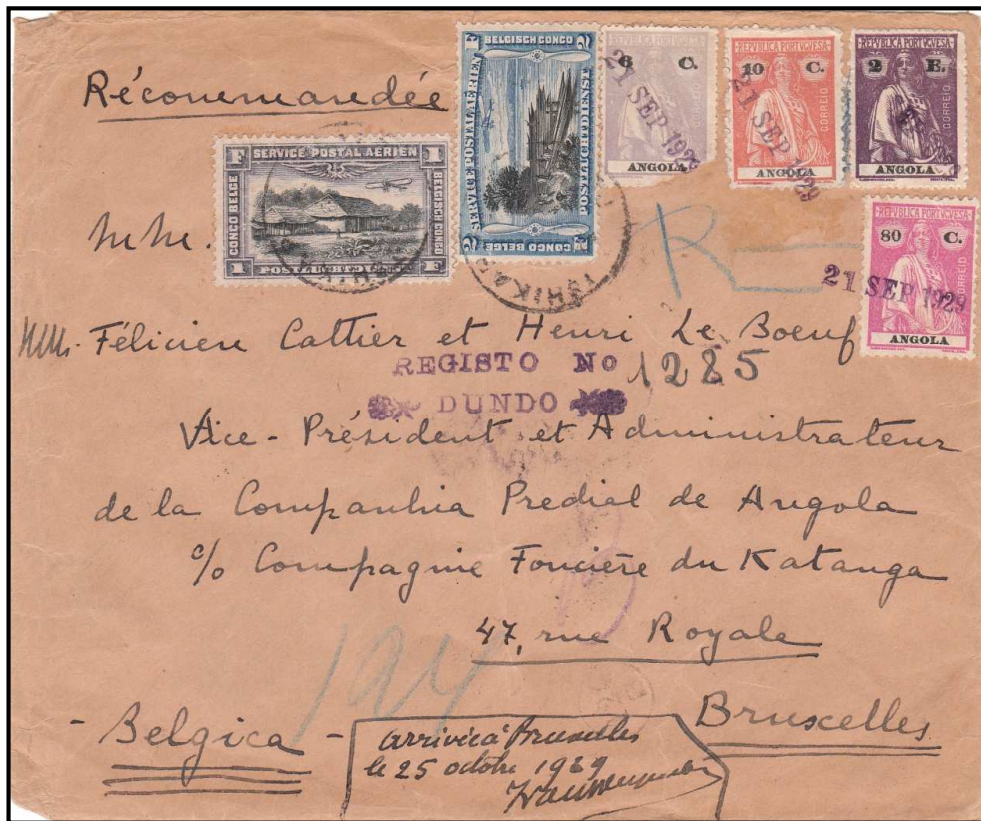 Récommandée
F SERVICE POSTAL AÉRIEN 1
CONGO BELGE
BELGISCH CONGO
1 POSTLUCHTDIENST F
BELGISCH CONGO 2
2 SERVICE POSTAL AÉRIEN F
POSTLUCHTDIENST
CONGO BELGE
TSHIKAP
6 C.
ANGOLA
21 SEP 1929
REPUBLICA PORTUGUESA
10 C.
CORREIO
ANGOLA
21 SEP 1929
REPUBLICA PORTUGUESA
2 E.
CORREIO
ANGOLA
REPUBLICA PORTUGUESA
80 C.
CORREIO
21 SEP 1929
ANGOLA
R
MM. Félicien Cattier et Henri Le Boeuf
REGISTO No 1285
DUNDO
Vice-Président et Administrateur
de la Companhia Predial de Angola
c/o Compagnie Foncière du Katanga
47, rue Royale
Bruxelles
- Belgica -
arrivée à Bruxelles
le 25 octobre 1929